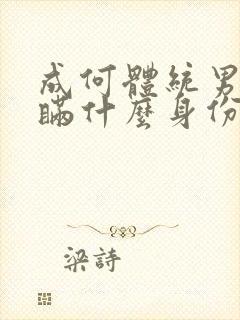 成何體統男
瞞什麼身份
梁詩